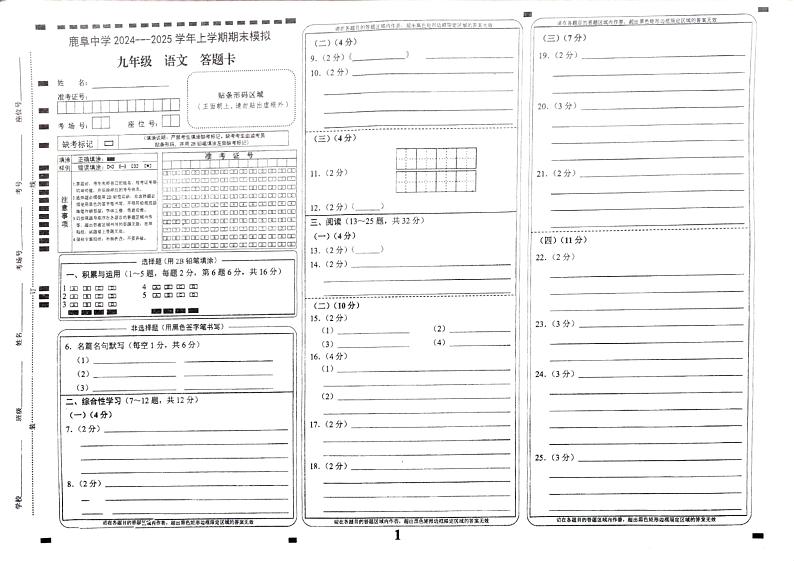 鹿阜中学 2024---2025 学年上学期期末模拟
九年级 语文 答题卡
姓 名：
准考证号：
考 场 号： 座 位 号：
贴条形码区域
（正面朝上，请勿贴出虚框外）
缺考标记
填涂 正确填涂：
样例 错误填涂：
准 考 证 号
注意事项
选择题（用 2B 铅笔填涂）
一、积累与运用（1～5 题，每题 2 分，第 6 题 6 分，共 16 分）
1 4
2 5
3
非选择题（用黑色签字笔书写）
6．名篇名句默写（每空 1 分，共 6 分）
（1）
（2）
（3）
二、综合性学习（7～12 题，共 12 分）
（一）（4 分）
7.（2 分）
8.（2 分）
请在各题目的答题区域内作答，超出黑色矩形边框限定区域的答案无效
学校
班级
姓名
考场号
考号
座位号
装
订
线
请在各题目的答题区域内作答，超出黑色矩形边框限定区域的答案无效
（二）（4 分）
9.（2 分）（ ）
10.（2 分）
（三）（4 分）
11.（2 分）
12.（2 分）（ ）
三、阅读（13～25 题，共 32 分）
（一）（4 分）
13.（2 分）（ ）
14.（2 分）
（二）（10 分）
15.（2 分）
（1） （2）
（3） （4）
16.（4 分）
（1）
（2）
17.（2 分）
18.（2 分）
请在各题目的答题区域内作答，超出黑色矩形边框限定区域的答案无效
请在各题目的答题区域内作答，超出黑色矩形边框限定区域的答案无效
（三）（7 分）
19.（2 分）
20.（3 分）
21.（2 分）
（四）（11 分）
22.（2 分）
23.（3 分）
24.（3 分）
25.（3 分）
请在各题目的答题区域内作答，超出黑色矩形边框限定区域的答案无效
1